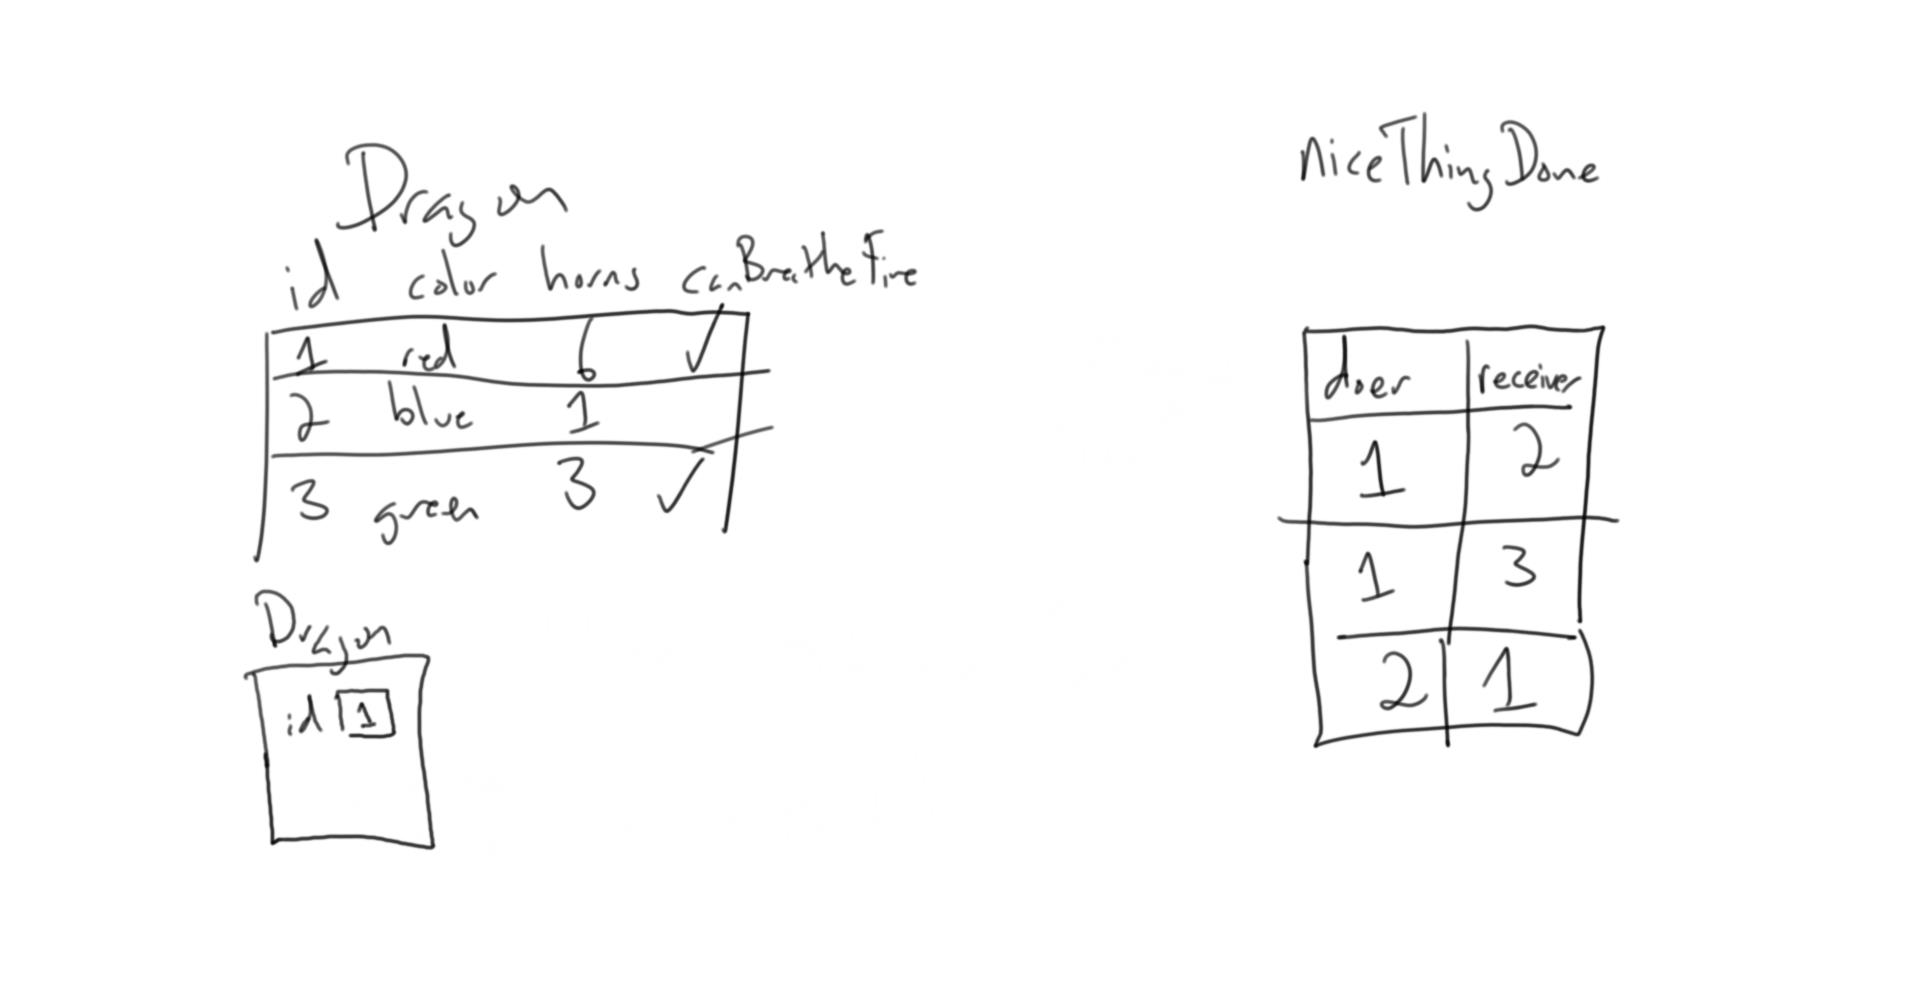 Dragon
id color horns canBreatheFire
1 red 6 ✓
2 blue 1
3 green 3 ✓
Dragon
id 1
niceThingDone
doer receiver
1 2
1 3
2 1